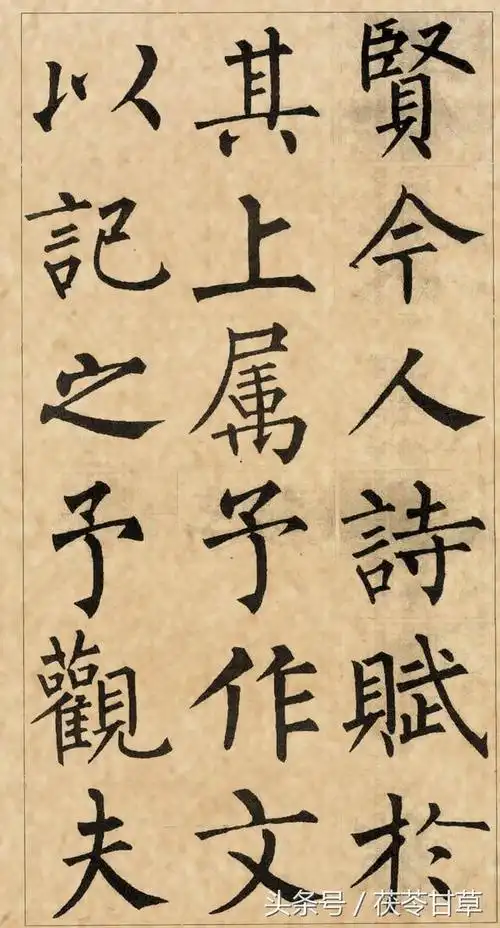 賢今人詩賦於
其上属予作文
以記之予觀夫
头条号/茯苓甘草